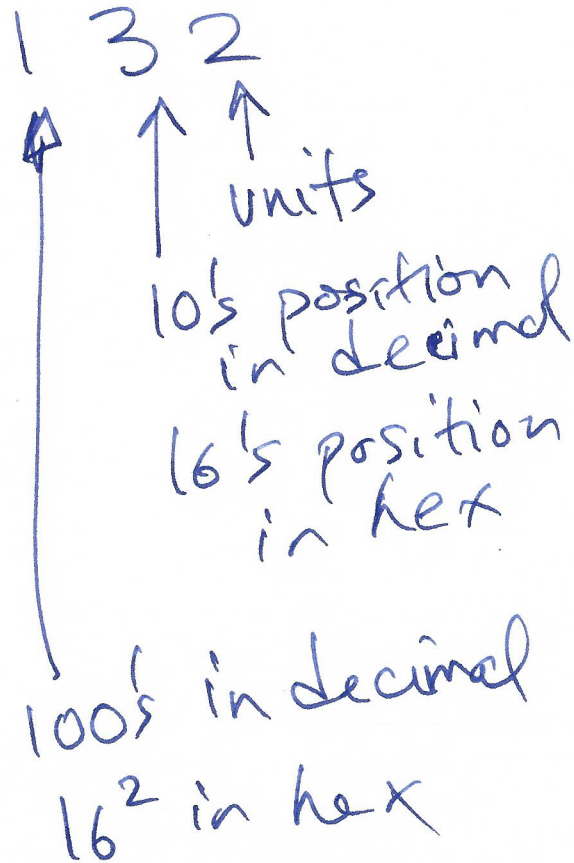 1 3 2
units
10's position
in decimal
16's position
in hex
100's in decimal
16² in hex